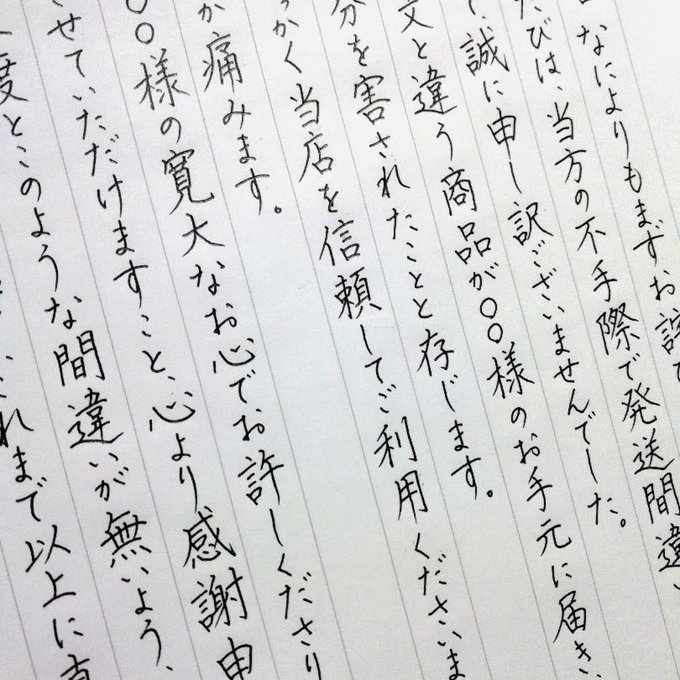 なによりもまずお詫び
たびは、当方の不手際で発送間違い
、誠に申し訳ございませんでした。
文と違う商品が〇〇様のお手元に届き、
分を害されたことと存じます。
かく当店を信頼してご利用くださいま
が痛みます。
〇〇様の寛大なお心でお許しくださり
させていただけますこと、心より感謝申
度とこのような間違いが無いよう、
これまで以上に